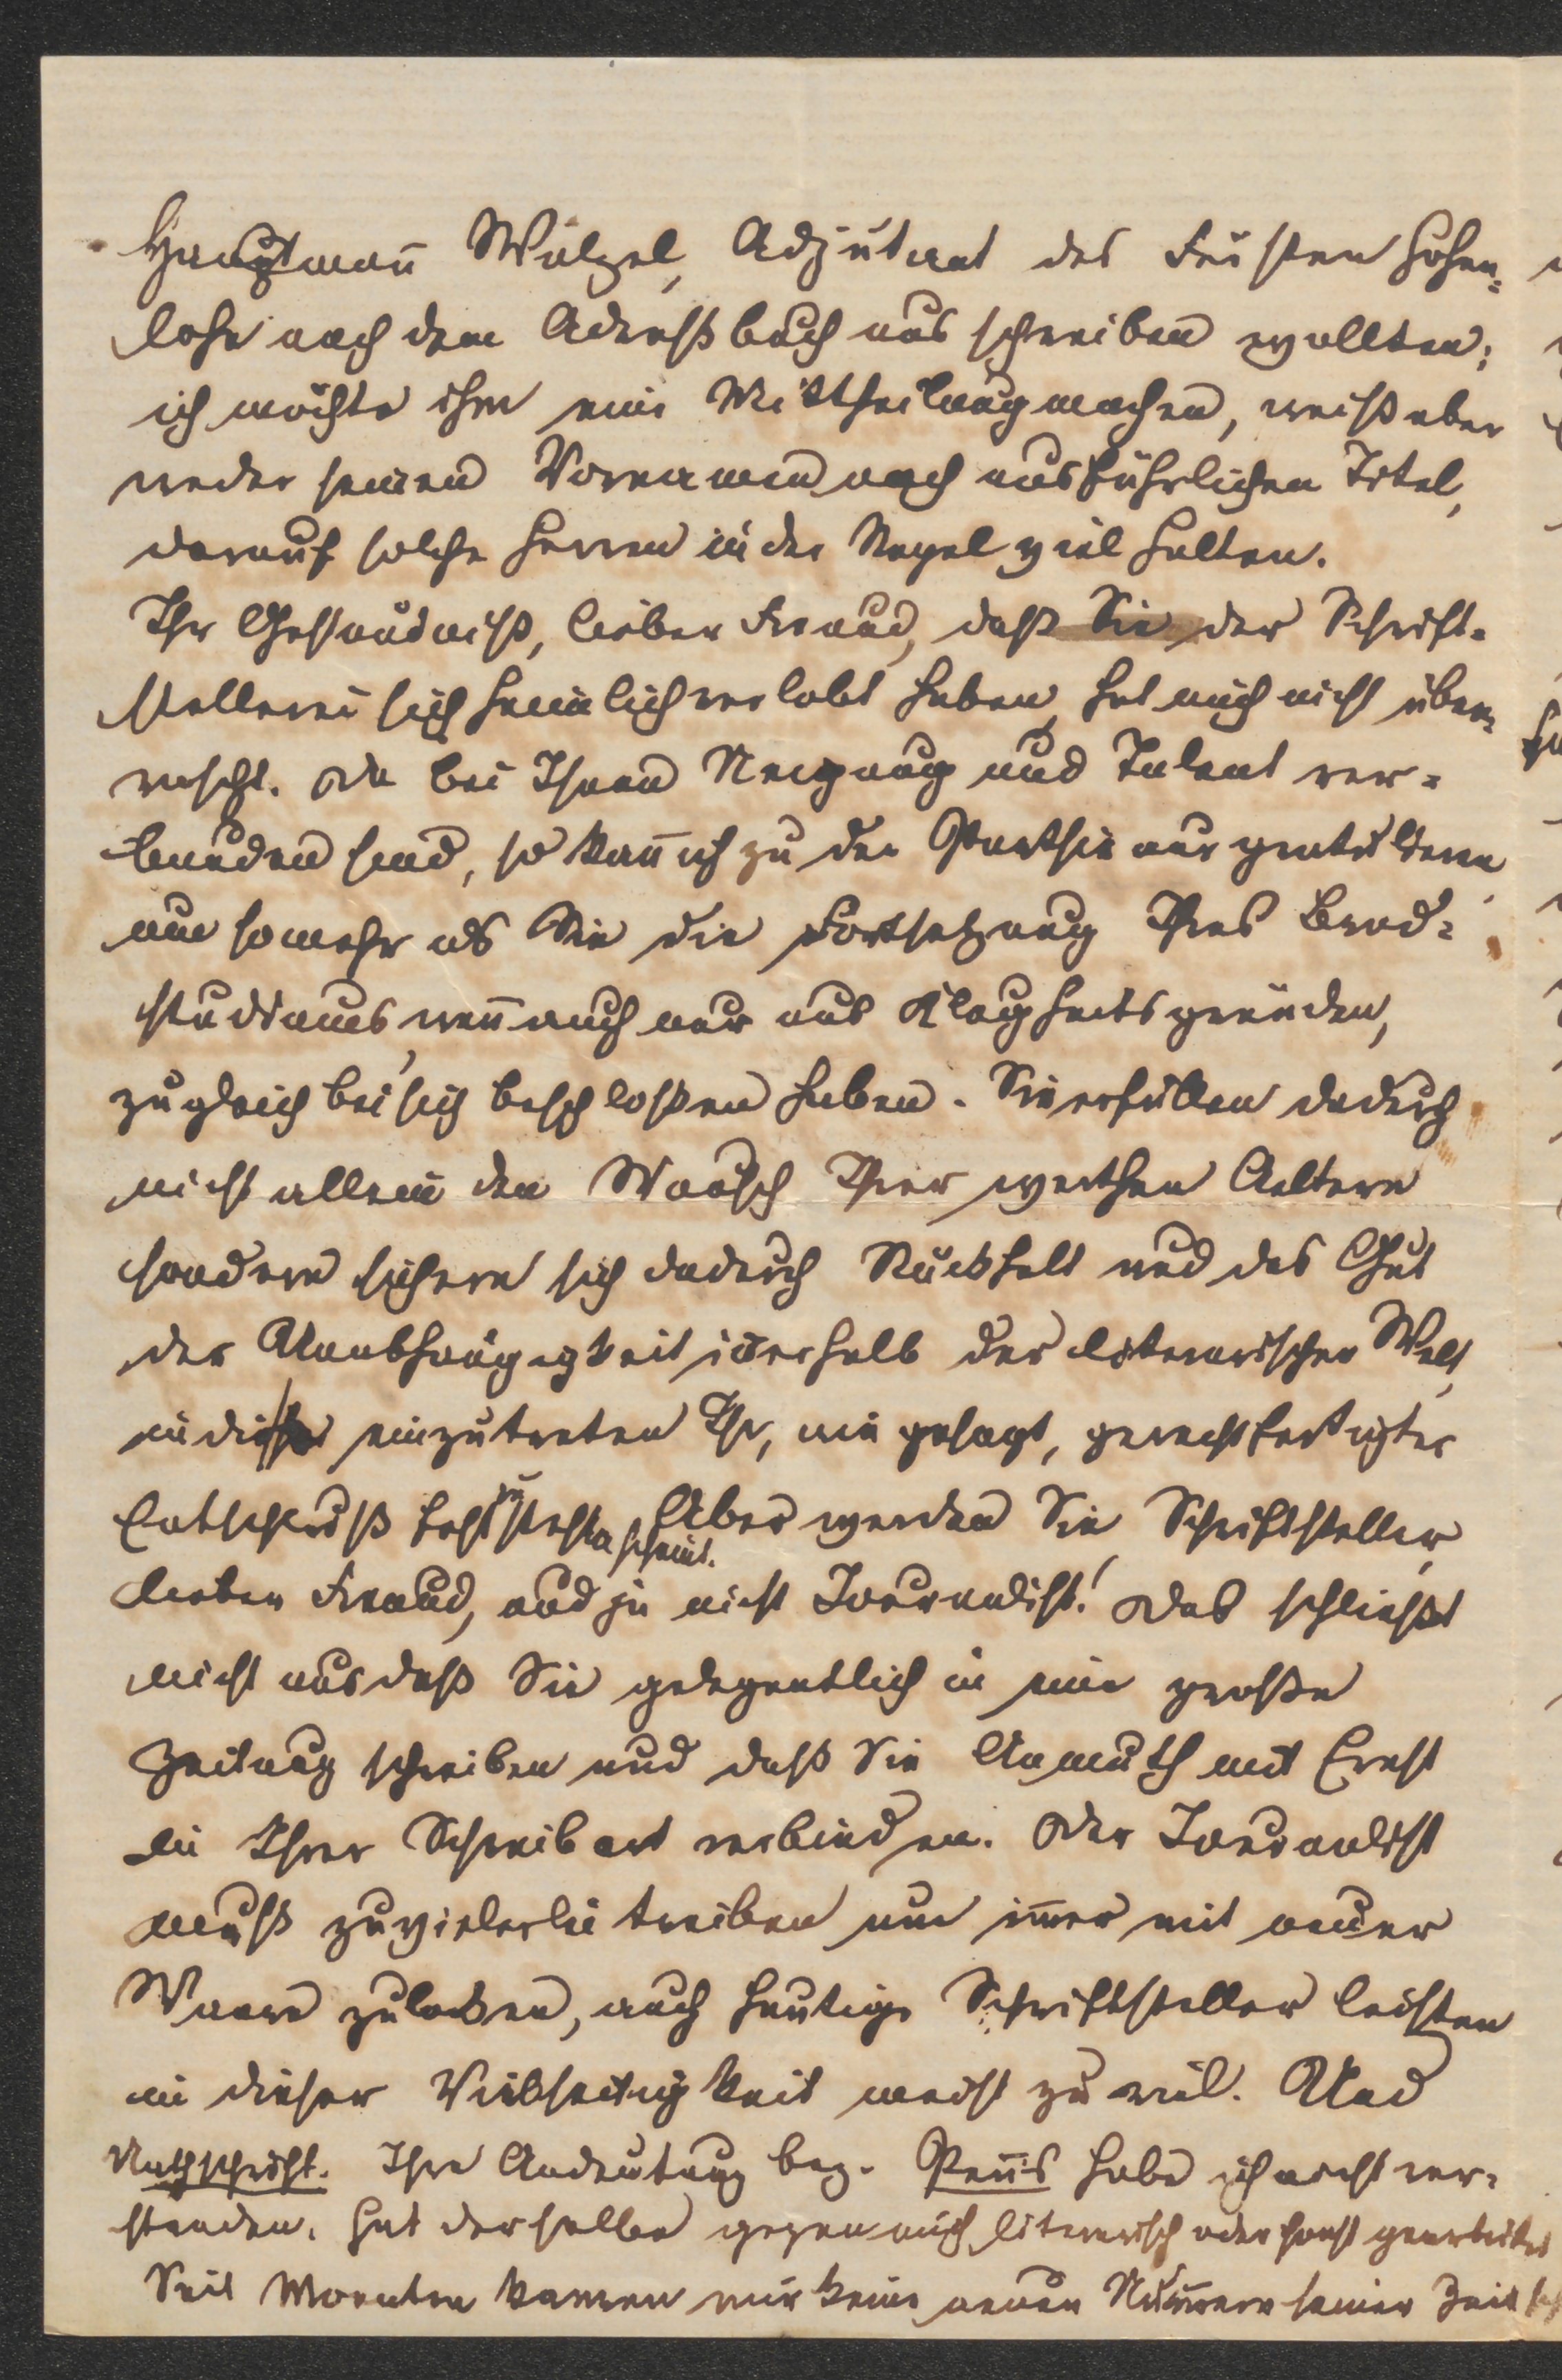 Hauptmann Wülzel, Adjutant des Fürsten Hohen-
lohe nach dem Adreßbuch aus schreiben wollten;
ich möchte ihm eine Mittheilung machen, weiß aber
weder seinen Vornamen noch ausführlichen Titel,
darauf solche Herren in der Regel viel halten.
Ihr Geständniß, lieber Freund, daß Sie der Schrift-
stellerei sich heimlich verlobt haben, hat mich nicht über-
rascht. Da bei Ihnen Neigung und Talent ver-
bunden sind, so kann ich zu der Parthie nur gratuliren,
um so mehr als Sie die Fortsetzung Ihres Brod-
studiums, wenn auch nur aus Klugheitsgründen,
zugleich bei sich beschloßen haben. Sie erfüllen dadurch
nicht allein den Wunsch Ihrer werthen Aeltern
sondern sichern sich dadurch Rückhalt und das Gut
der Unabhängigkeit innerhalb der literarischen Welt,
in die einzutreten Ihr, wie gesagt, gerechtfertigter
Entschluß fest zu stehen scheint. Aber werden Sie Schriftsteller,
lieber Freund, und ja nicht Journalist! Das schließt
nicht aus daß Sie gelegentlich in eine große
Zeitung schreiben und daß Sie Anmuth mit Ernst
in Ihrer Schreibart verbinden. Der Journalist
muß zu vielerlei treiben um immer mit neuer
Waare zu locken, auch heutige Schriftsteller leisten
in dieser Vielseitigkeit meist zu viel. Und
Nachschrift. Ihre Andeutung bez. Penn's habe ich nicht ver-
standen. Hat derselbe gegen mich literarisch oder sonst gearbeitet
Seit Monaten kamen mir keine neuen Nummern seiner